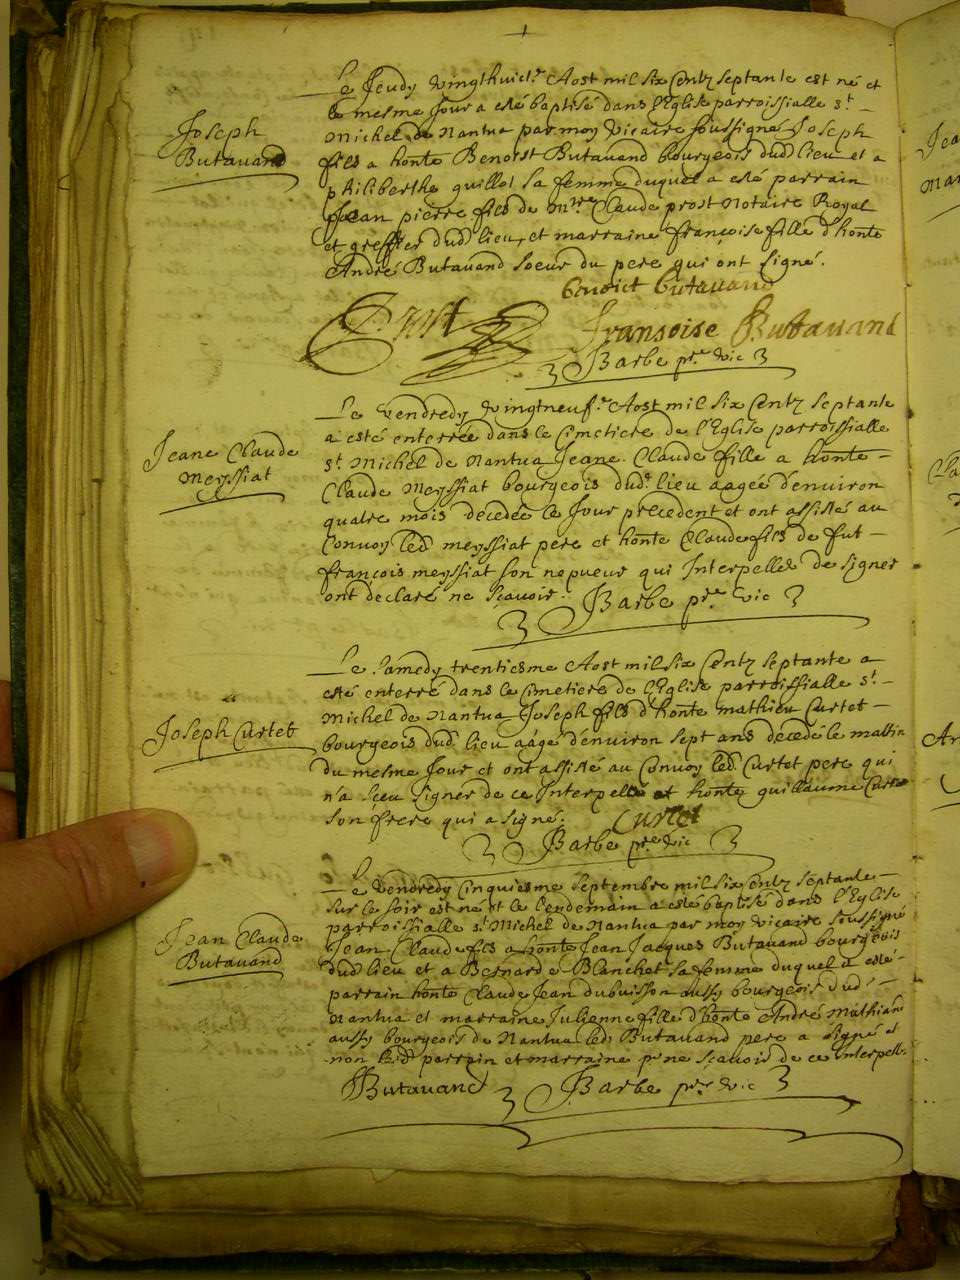 Joseph
Butavand
Le Jeudy vingthuict.e Aost mil six Centz septante est né et
le mesme Jour a esté baptisé dans l'Eglise parroissialle s.t
Michel de Nantua par moy vicaire soussigné Joseph
fils a honte Benoist Butavand bourgeois dud lieu et a
philiberthe guillot sa femme duquel a esté parrain
Jean pierre fils de M.re Claude prost Notaire Royal
et greffier dud lieu, et marraine françoise fille d'honte
André Butavand soeur du pere qui ont signé.
benoict butavand
Prost
Fransoise Butavand
Barbe p.re vic
Jeane Claude
Meyssiat
Le vendredy vingtneuf.e Aost mil six Centz septante
a esté enterrée dans le cimetiere de l'Eglise parroissialle
s.t Michel de Nantua Jeane Claude fille a honte
Claude Meyssiat bourgeois dud lieu aagée d'environ
quatre mois decedée le Jour precedent et ont assisté au
Convoy led meyssiat pere et honte Claude fils de fut
françois meyssiat son nepueur qui Interpellés de signer
ont declaré ne sçavoir.
Barbe p.re vic
Joseph Curtet
Le samedy trentiesme Aost mil six Centz septante a
esté enterré dans le cimetiere de l'Eglise parroissialle s.t
Michel de Nantua Joseph fils d'honte mathieu Curtet
bourgeois dud lieu aagé d'environ sept ans decedé le mattin
du mesme Jour et ont assisté au Convoy led Curtet pere qui
n'a sçeu signer de ce Interpellé et honte guillaume Curtet
son frere qui a signé.
Curtet
Barbe p.re vic
Jean Claude
Butavand
Le vendredy cinquiesme septembre mil six Centz septante
sur le soir est né et le lendemain a esté baptisé dans l'Eglise
parroissialle s.t Michel de Nantua par moy vicaire soussigné
Jean Claude fils a honte Jean Jacques Butavand bourgeois
dud lieu et a Bernarde Blanchet sa femme duquel a esté
parrain honte Claude Jean dubuisson aussy bourgeois dud
Nantua et marraine Julienne fille d'honte André Mathian
aussy bourgeois de Nantua led Butavand pere a signé et
non lesd parrain et marraine p.r ne sçavoir de ce Interpell.
Butavand
Barbe p.re vic